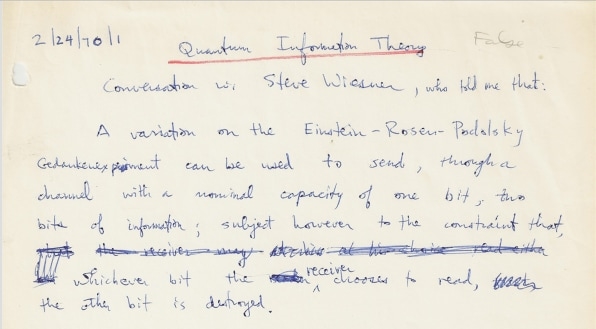 2/24/70/1 Quantum Information Theory False
Conversation w. Steve Wiesner, who told me that:
A variation on the Einstein-Rosen-Podolsky
Gedankenexperiment can be used to send, through a
channel with a nominal capacity of one bit, two
bits of information; subject however to the constraint that,
the receiver may at his choice read either
whichever bit the receiver chooses to read,
the other bit is destroyed.